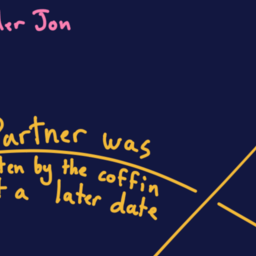 Jon
Partner was
by the coffin
a later date